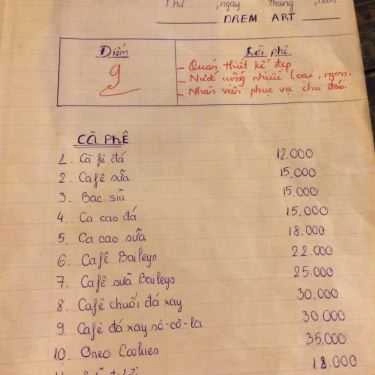 Thứ ,ngày tháng ,năm
DREM ART
Điểm Lời phê
9
- Quán thiết kế đẹp
- Nước uống nhiều loại, ngon.
- Nhân viên phục vụ chu đáo.
CÀ PHÊ
1. Cà fê đá 12.000
2. Cafê sữa 15.000
3. Bạc sỉu 15.000
4. Ca cao đá 15.000
5. Ca cao sữa 18.000
6. Cafê Baileys 22.000
7. Cafê sữa Baileys 25.000
8. Cafê chuối đá xay 30.000
9. Cafê đá xay sô-cô-la 30.000
10. Oreo Cookies 35.000
18.000